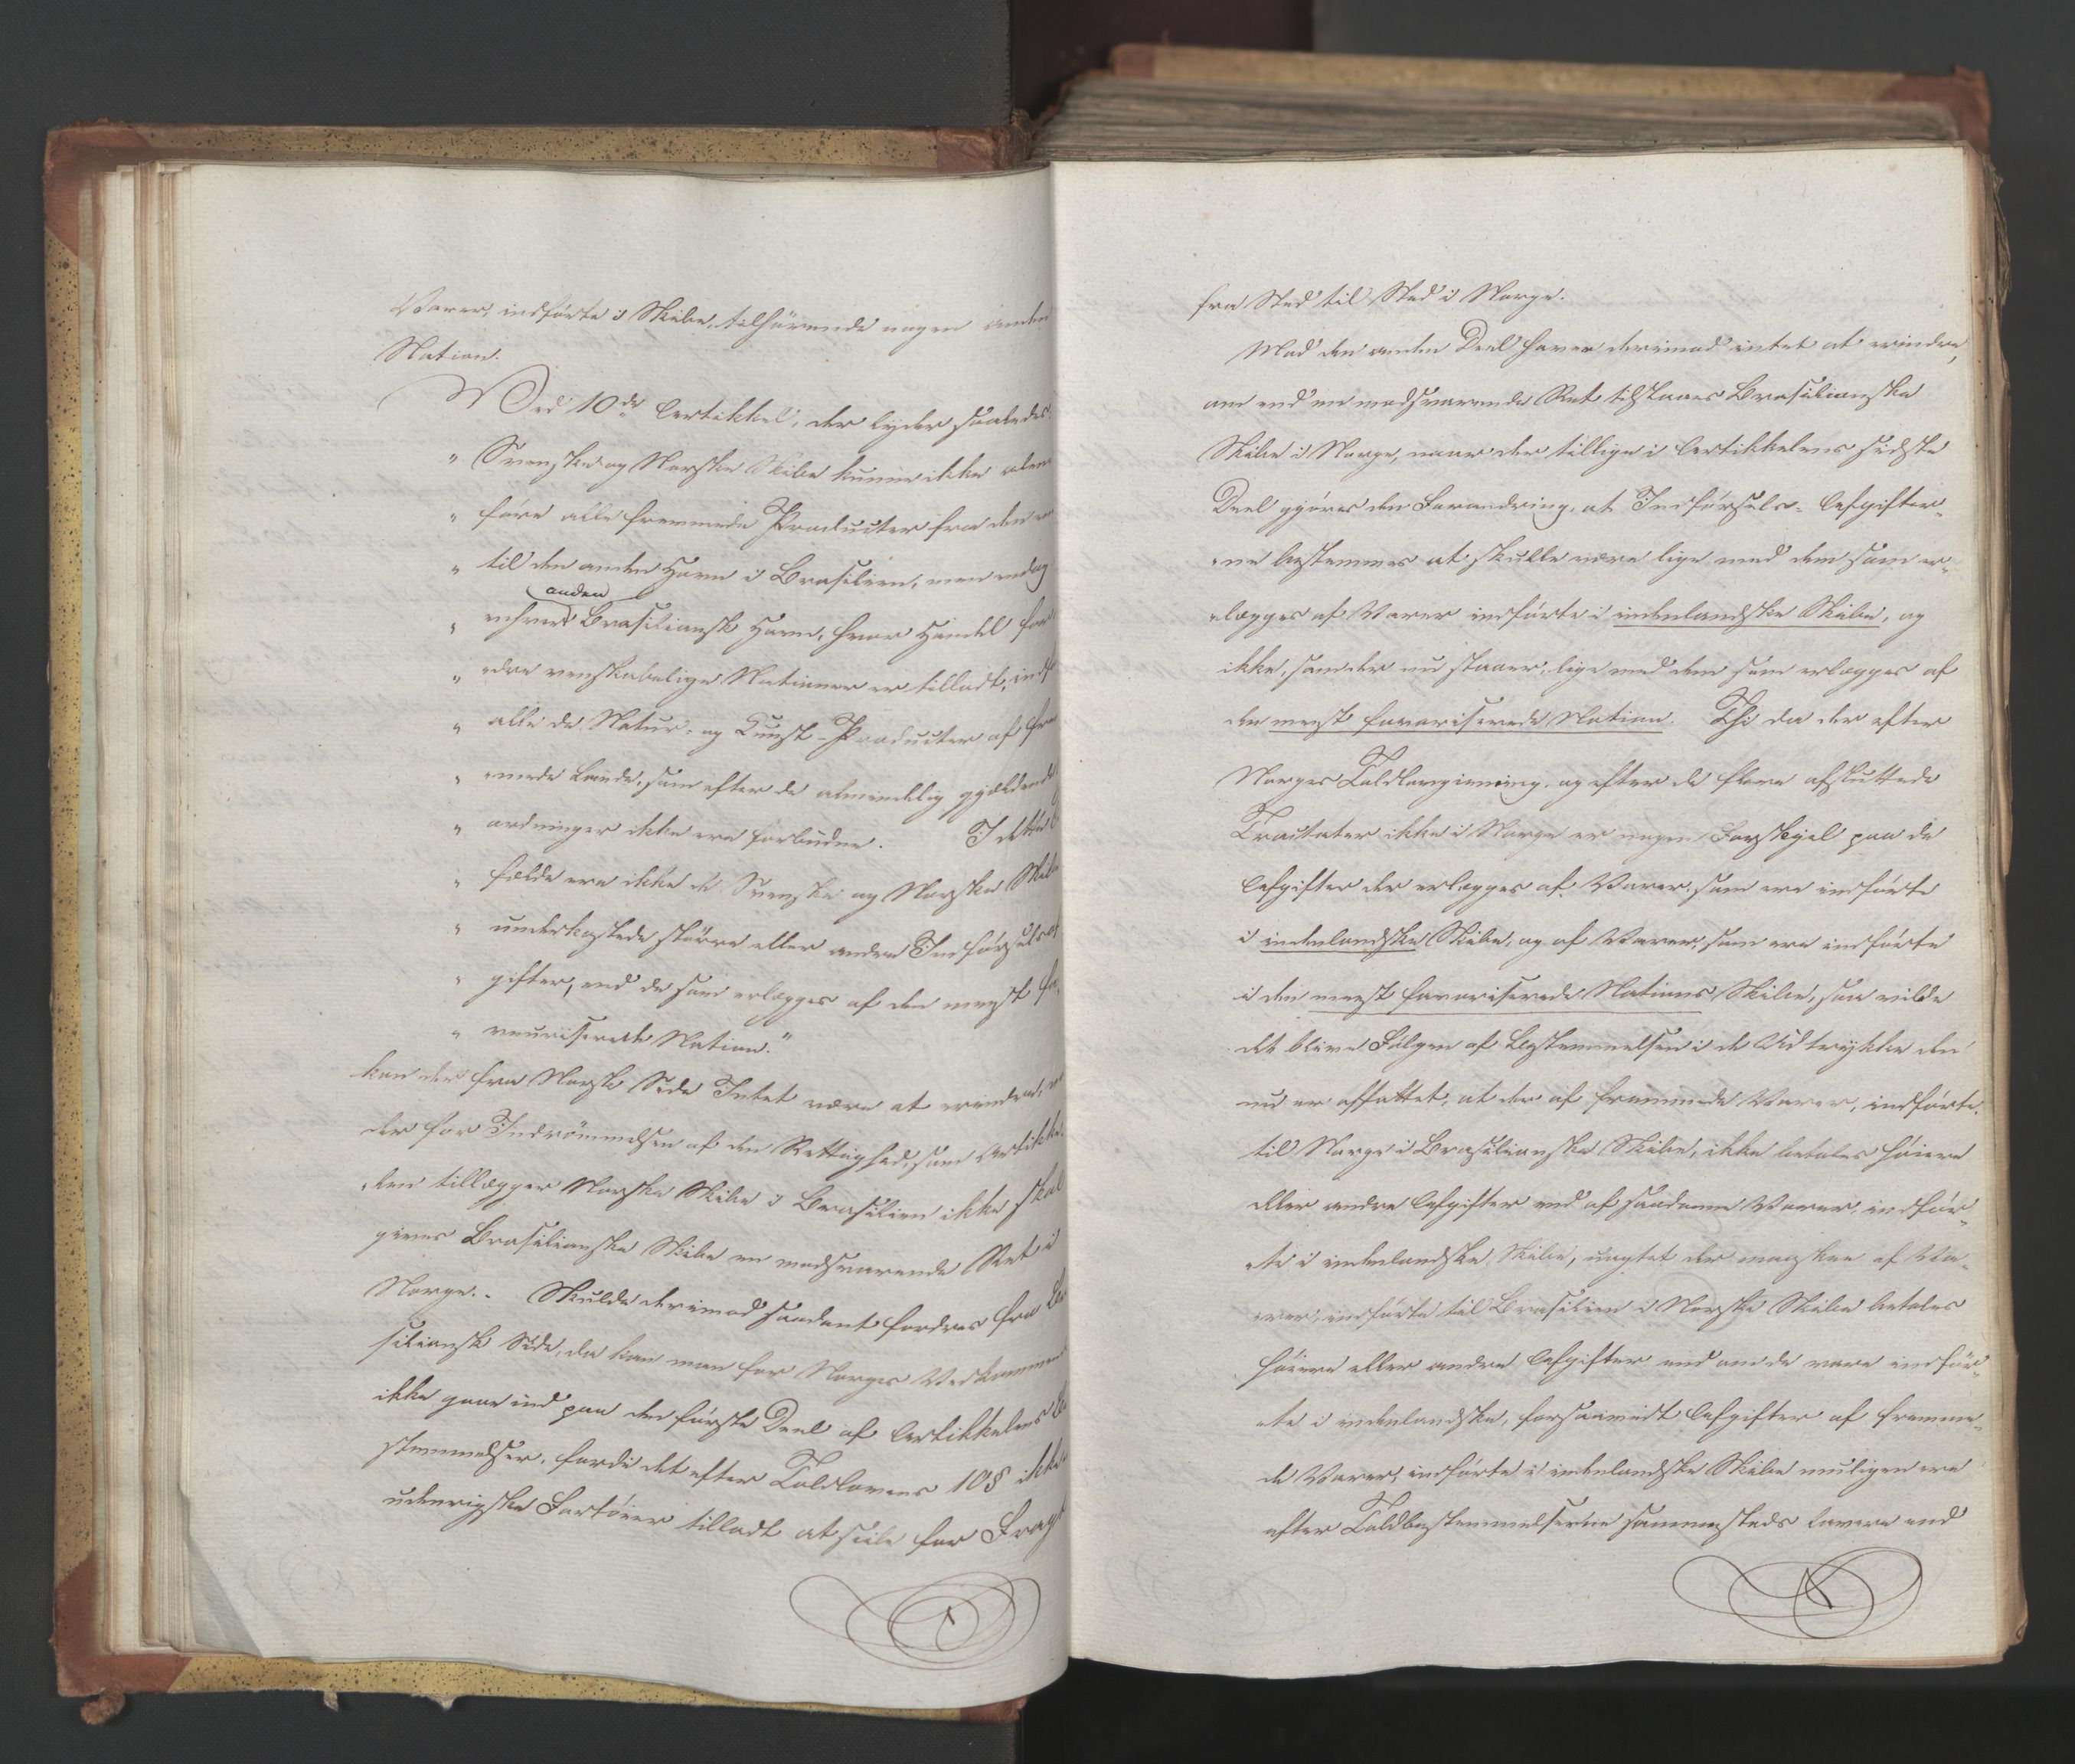 Varer, indførte i Skibe, tilhørende nogen anden
Nation.
Ved 10de Artikkel, der lyder saaledes:
" Svenske og Norske Skibe kunne ikke alene
" føre alle fremmede Producter fra den ene
" til den anden Havn i Brasilien, men endog
anden
" enhver Brasiliansk Havn, hvor Handel for
" dre venskabelige Nationer er tilladt, indf
" alle de Natur- og Kunst-Producter af fre
" mede Lande, som efter de almindelig gjældende
" ordninger ikke ere forbudne. I dette
" fælde ere ikke de Svenske og Norske Skibe
" underkastede større eller andre Indførselsaf
" gifter, end de som erlægges af den meest fa
" vouriserede Nation."
kan der fra Norsk Side Intet være at erindre,
der for Indrømmelsen af den Rettighed, som Artikke
len tillægger Norske Skibe i Brasilien ikke skal
gives Brasilianske Skibe en modsvarende Ret i
Norge. - Skulde derimod saadant fordres fra Bra
siliansk Side, da kan man for Norges Vedkommende
ikke gaae ind paa den første Deel af Artikkelens Be
stemmelser, fordi det efter Toldlovens 10§ ikke
udenrigske Fartøier tilladt at seile for Fragt
fra Sted til Sted i Norge.
Mod den anden Deel haves derimod intet at erindre,
om end en modsvarende Ret tilstaaes Brasilianske
Skibe i Norge, naar der tillige i Artikkelens sidste
Deel gjøres den Forandring, at Indførsels-Afgifter-
ne bestemmes at skulle være lige med dem som er-
lægges af Varer indførte i indenlandske Skibe, og
ikke, som der nu staaer, lige med dem som erlægges af
den meest favoriserede Nation. Thi da der efter
Norges Toldlovgivning, og efter de flere afsluttede
Tractater ikke i Norge er nogen Forskjel paa de
Afgifter der erlægges af Varer, som ere indførte
i indenlandske Skibe, og af Varer, som ere indførte
i den meest favoriserede Nations Skibe, saa vilde
det blive Følgen af Bestemmelsen i de Udtrykke den
nu er affattet, at der af fremmede Varer, indførte
til Norge i Brasilianske Skibe, ikke betales høiere
eller andre Afgifter end af saadanne Varer, indfør-
te i indenlandske Skibe, uagtet der maaskee af Va-
rer, indførte til Brasilien i Norske Skibe betales
høiere eller andre Afgifter end om de vare indfør-
te i indenlandske, forsaavidt Afgifter af fremme-
de Varer, indførte i indenlandske Skibe muligen ere
efter Toldbestemmelserne sammesteds lavere end